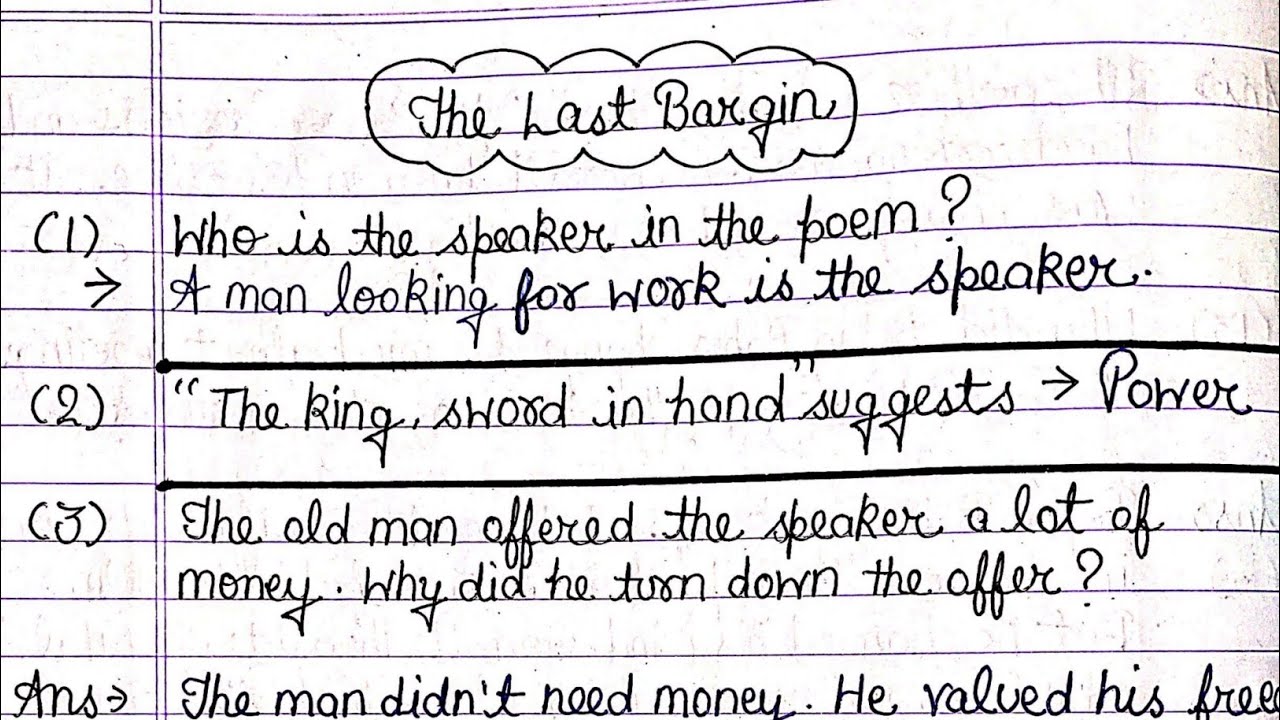 The Last Bargin
(1) Who is the speaker in the poem?
→ A man looking for work is the speaker.
(2) "The king, sword in hand" suggests → Power
(3) The old man offered the speaker a lot of
money. Why did he turn down the offer?
Ans → The man didn't need money. He valued his free